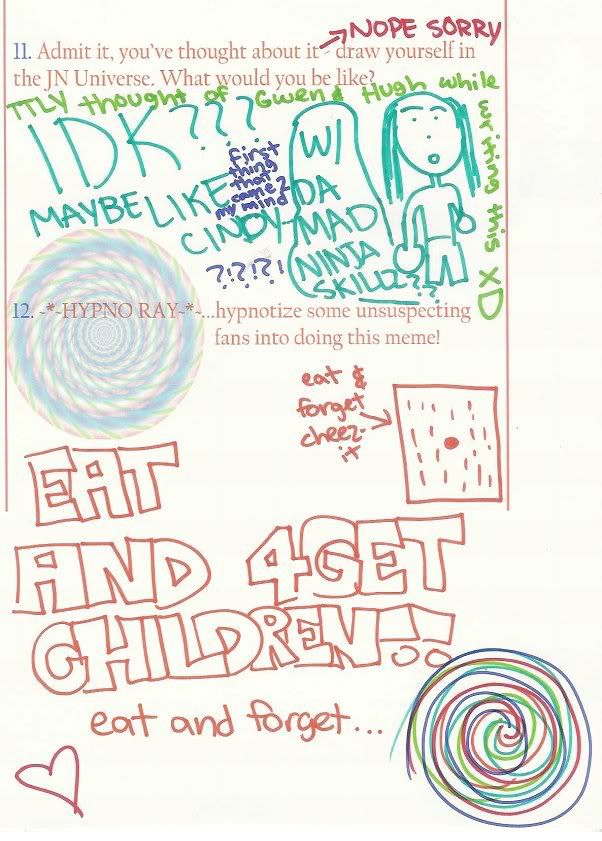 NOPE SORRY
11. Admit it, you've thought about it - draw yourself in
the JN Universe. What would you be like?
TTLY thought of Gwen & Hugh while writing this XD
IDK???
MAYBE LIKE
CINDY
first
thing
that
came 2
my mind
?!?!?!
W/
DA
MAD
NINJA
SKILLZ??
12. ~*~HYPNO RAY~*~...hypnotize some unsuspecting
fans into doing this meme!
eat &
forget
cheez-
it
EAT
AND 4GET
CHILDREN!!
eat and forget...